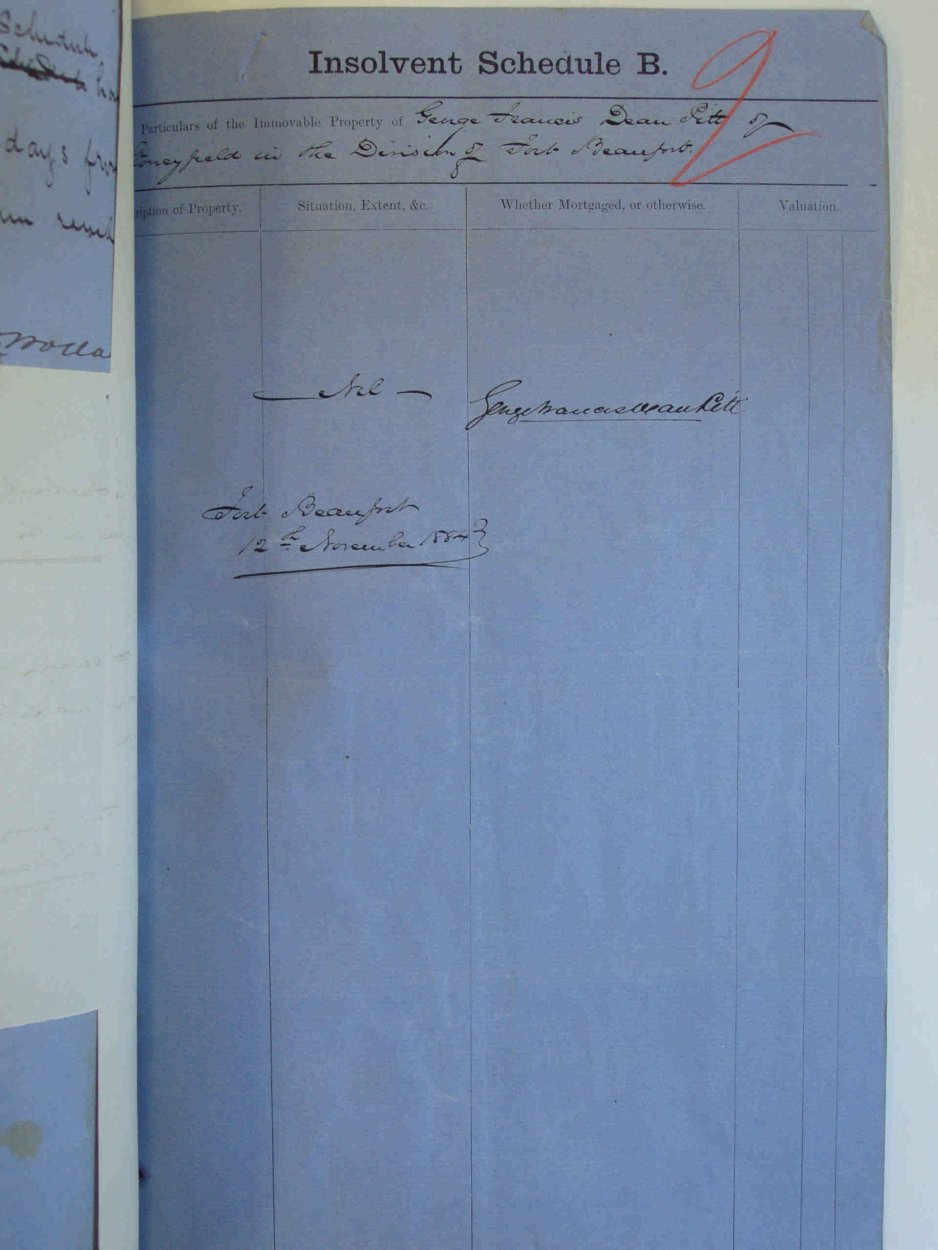 Schedule
days from
Insolvent Schedule B.
2
Particulars of the Immovable Property of George Francis Dean Pitt of
Honeyfield in the Division of Fort Beaufort.
ription of Property.
Situation, Extent, &c.
Whether Mortgaged, or otherwise.
Valuation.
— Nil —
George Francis Dean Pitt
Fort Beaufort
12th November 1884 }